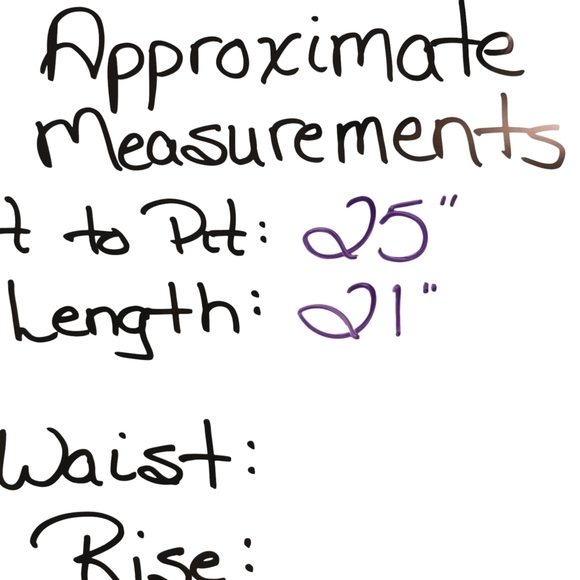 Approximate
Measurements
t to Pit: 25"
Length: 21"
Waist:
Rise: